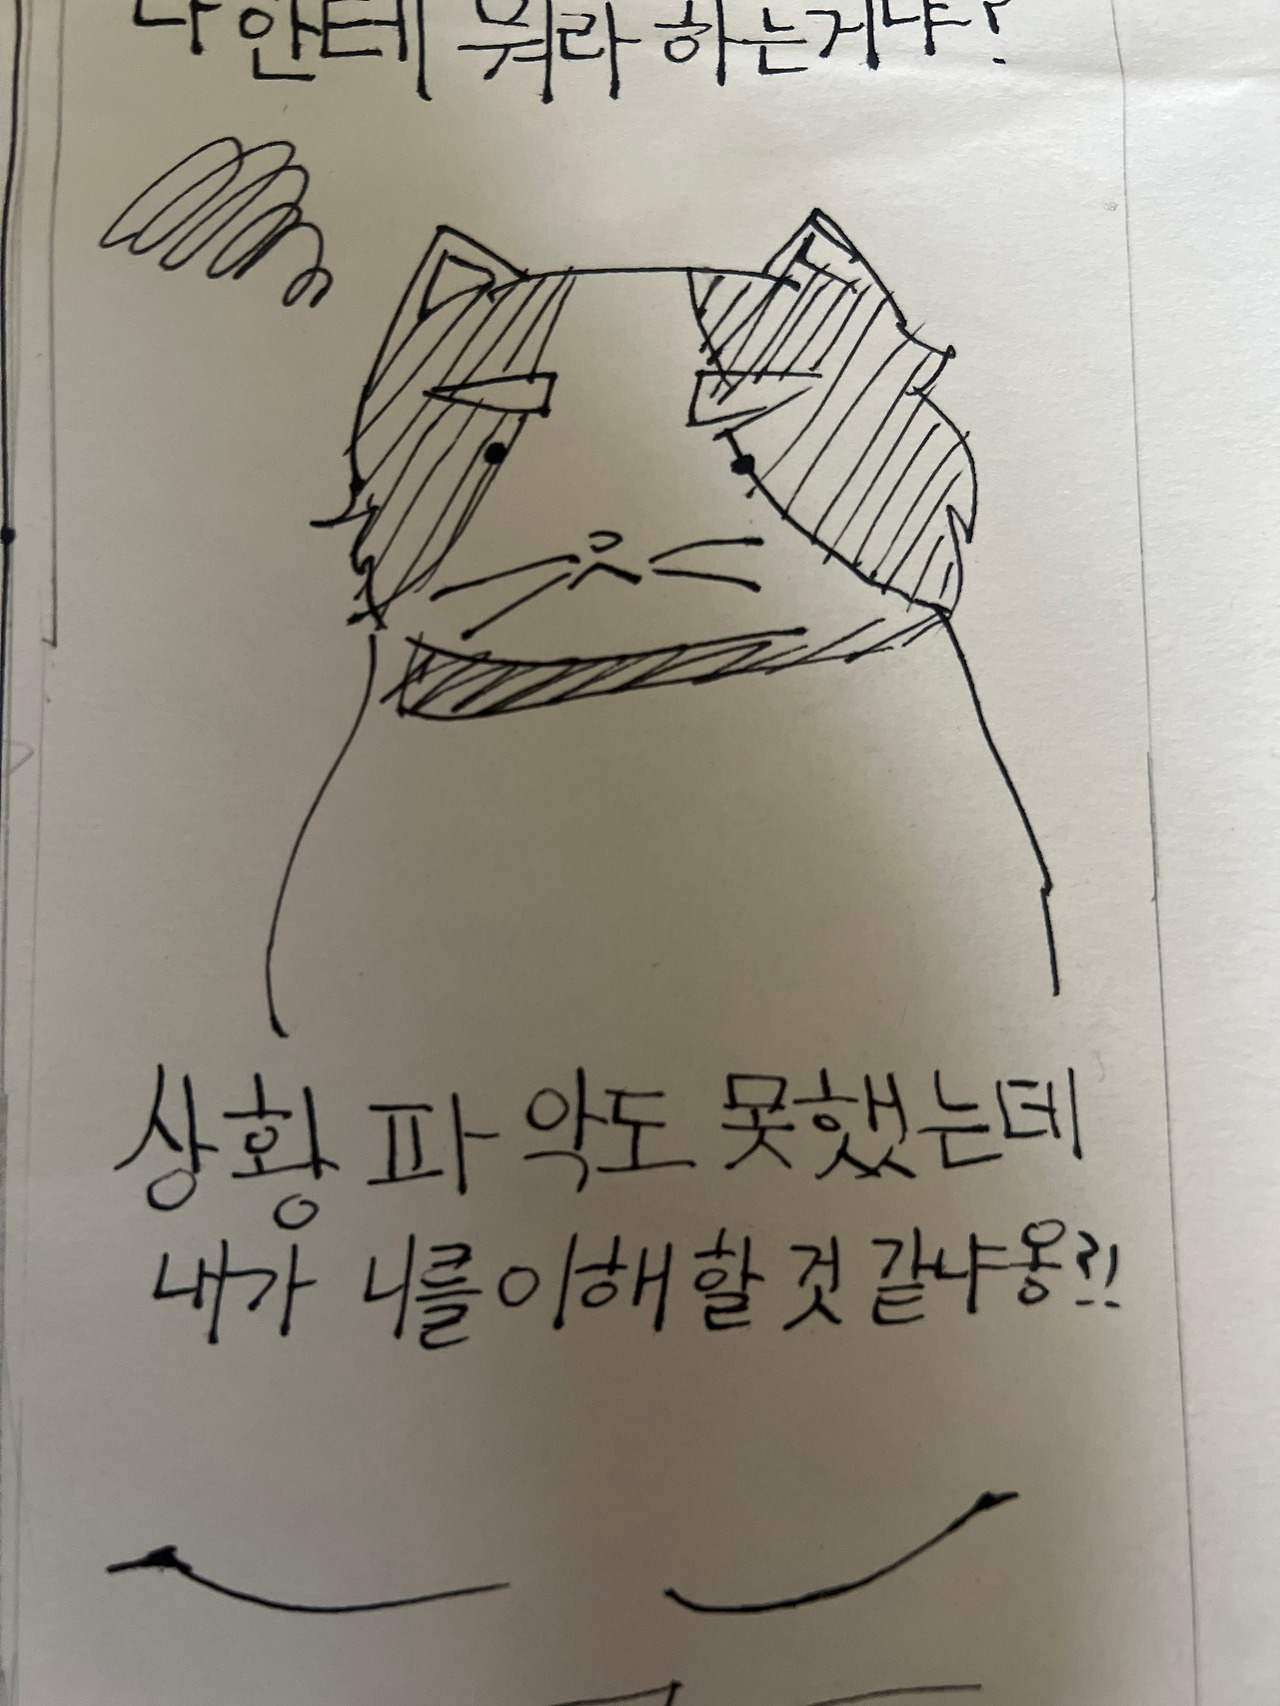 나한테 뭐라 하는거냐?
상황 파악도 못했는데
내가 너를 이해할 것 같냐옹?!